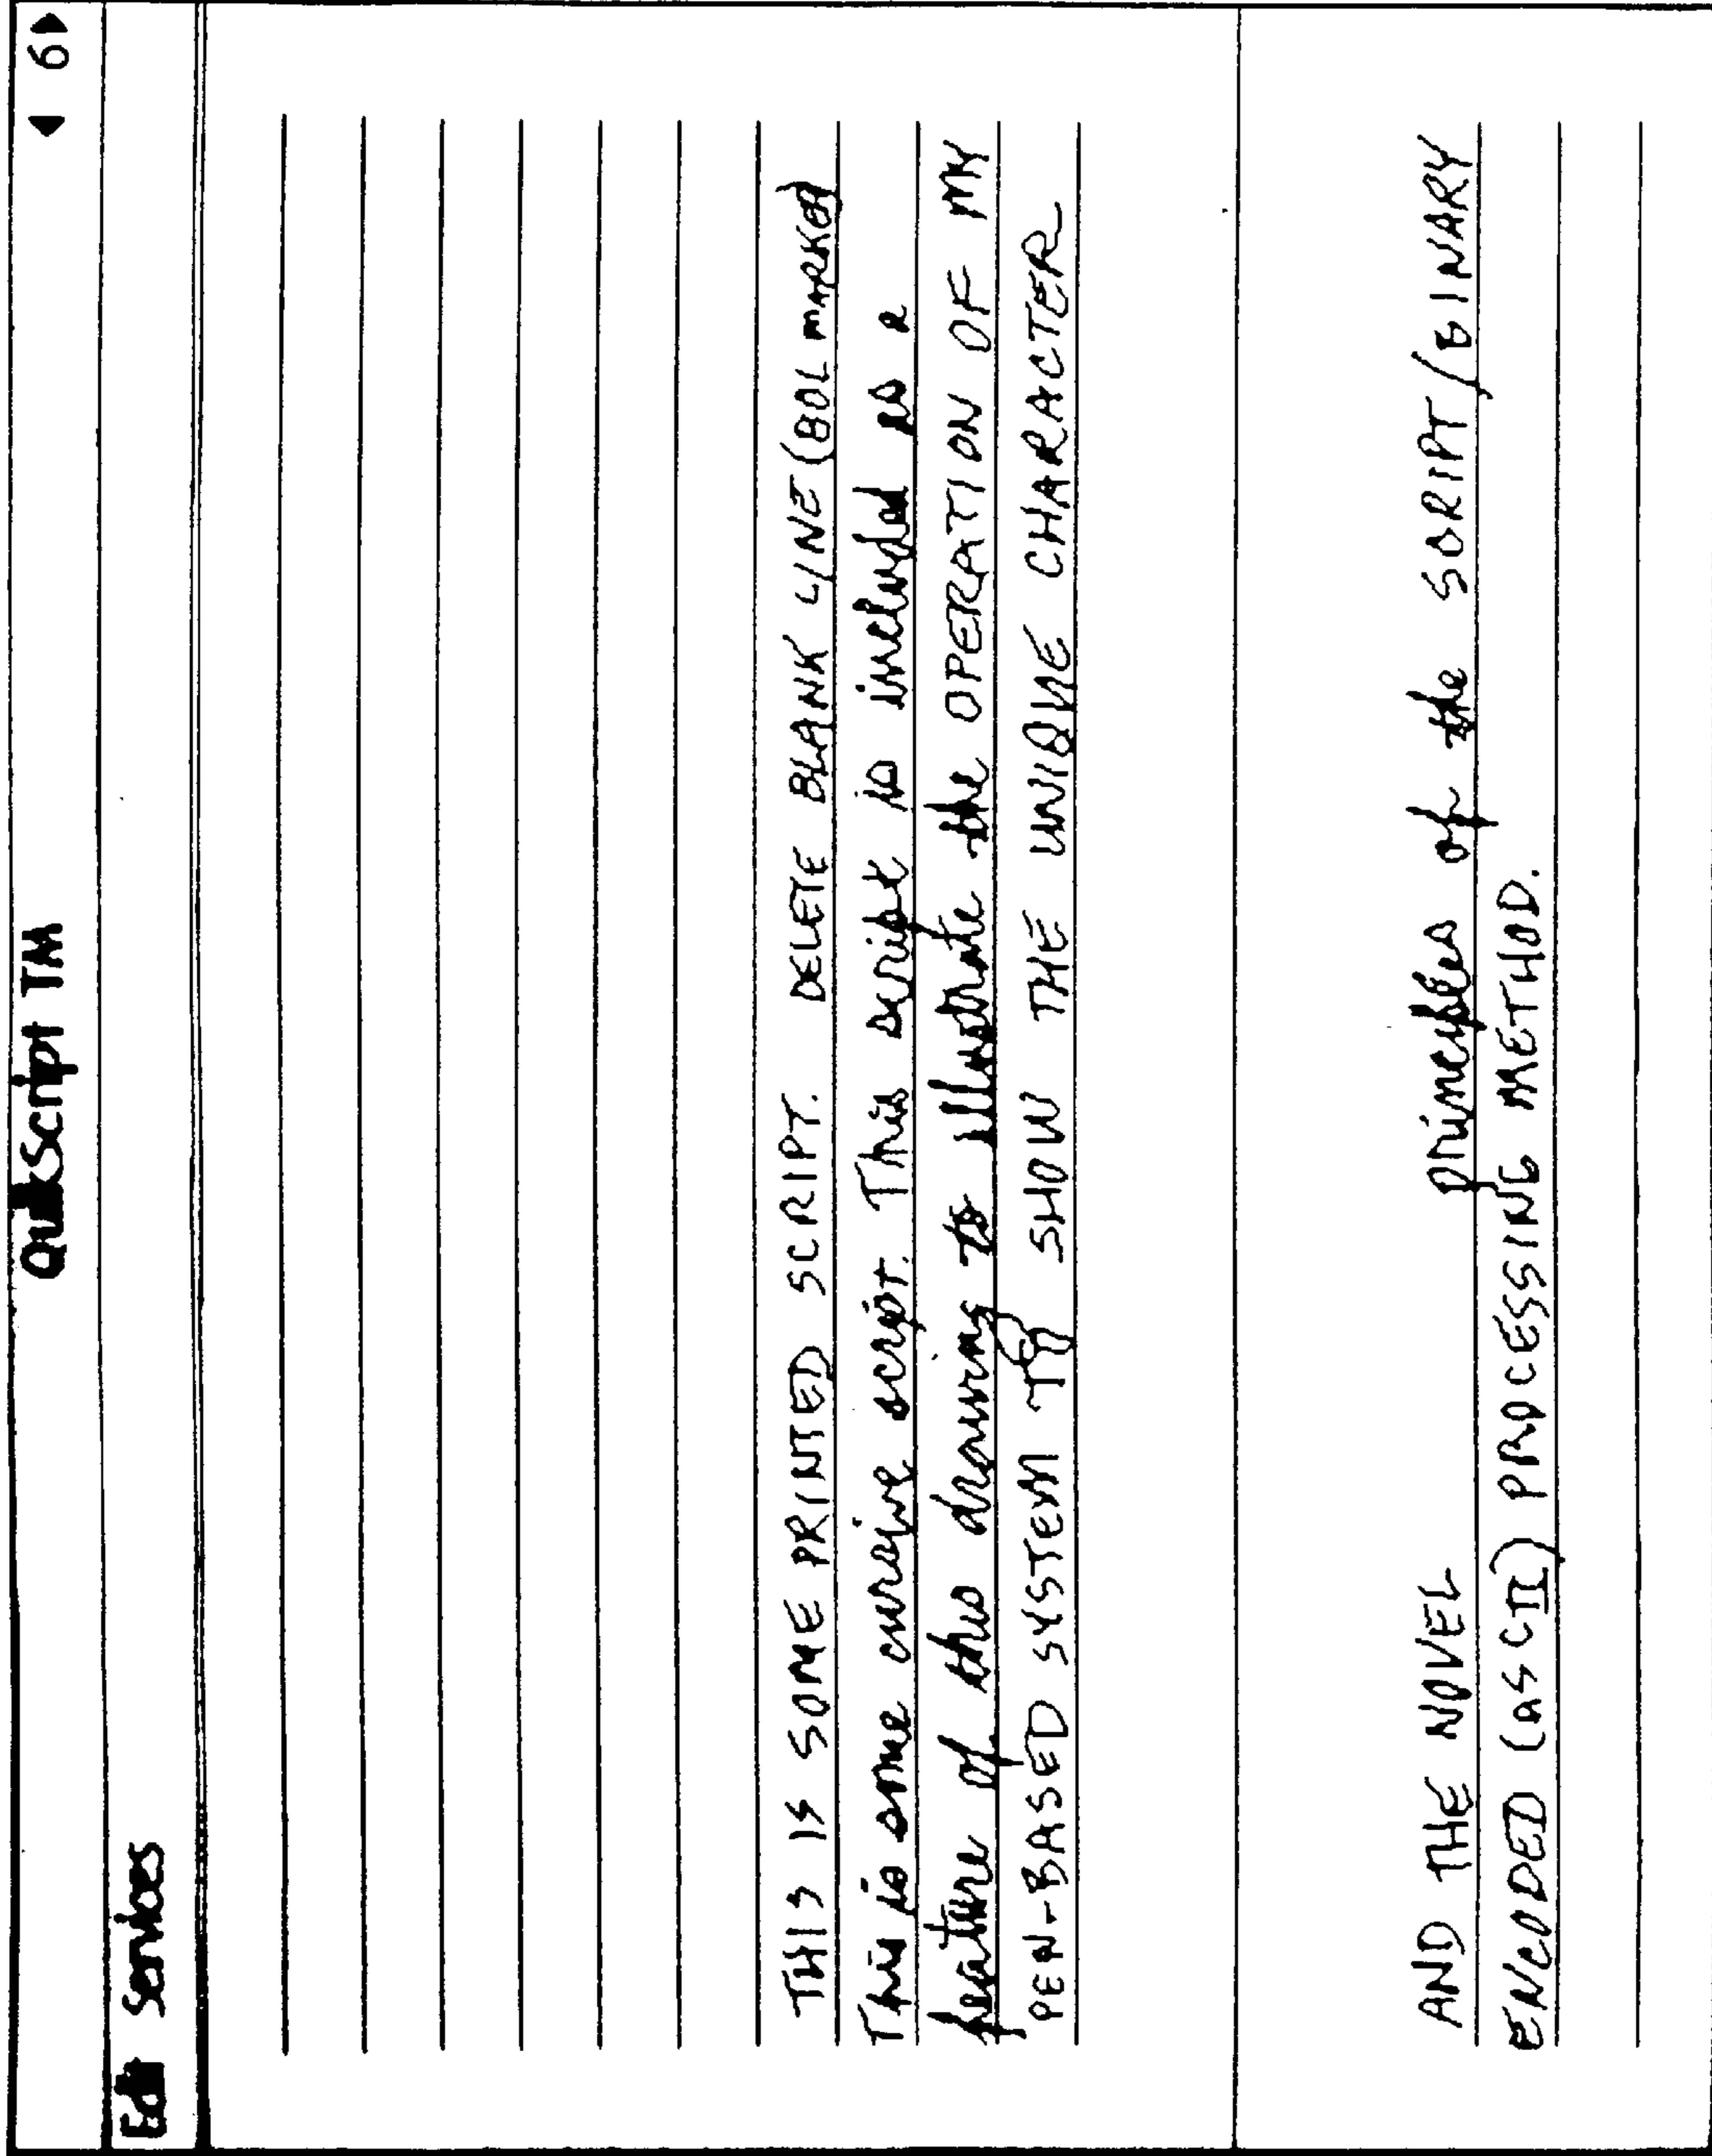 QuikScript TM
◀ 6▶
Edit Services
THIS IS SOME PRINTED SCRIPT. DELETE BLANK LINE (BOL MARKER)
This is some cursive script. This script is included as a
feature of this drawing to illustrate the OPERATION OF MY
PEN-BASED SYSTEM TO SHOW THE UNIQUE CHARACTER
AND THE NOVEL principles of the SCRIPT/BINARY
ENCODED (ASCII) PROCESSING METHOD.